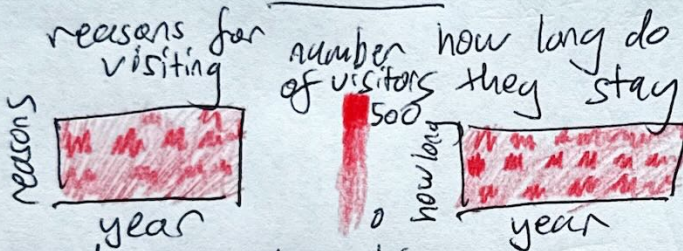 reasons for
visiting
reasons
year
number
of visitors
500
0
how long do
they stay
how long
year